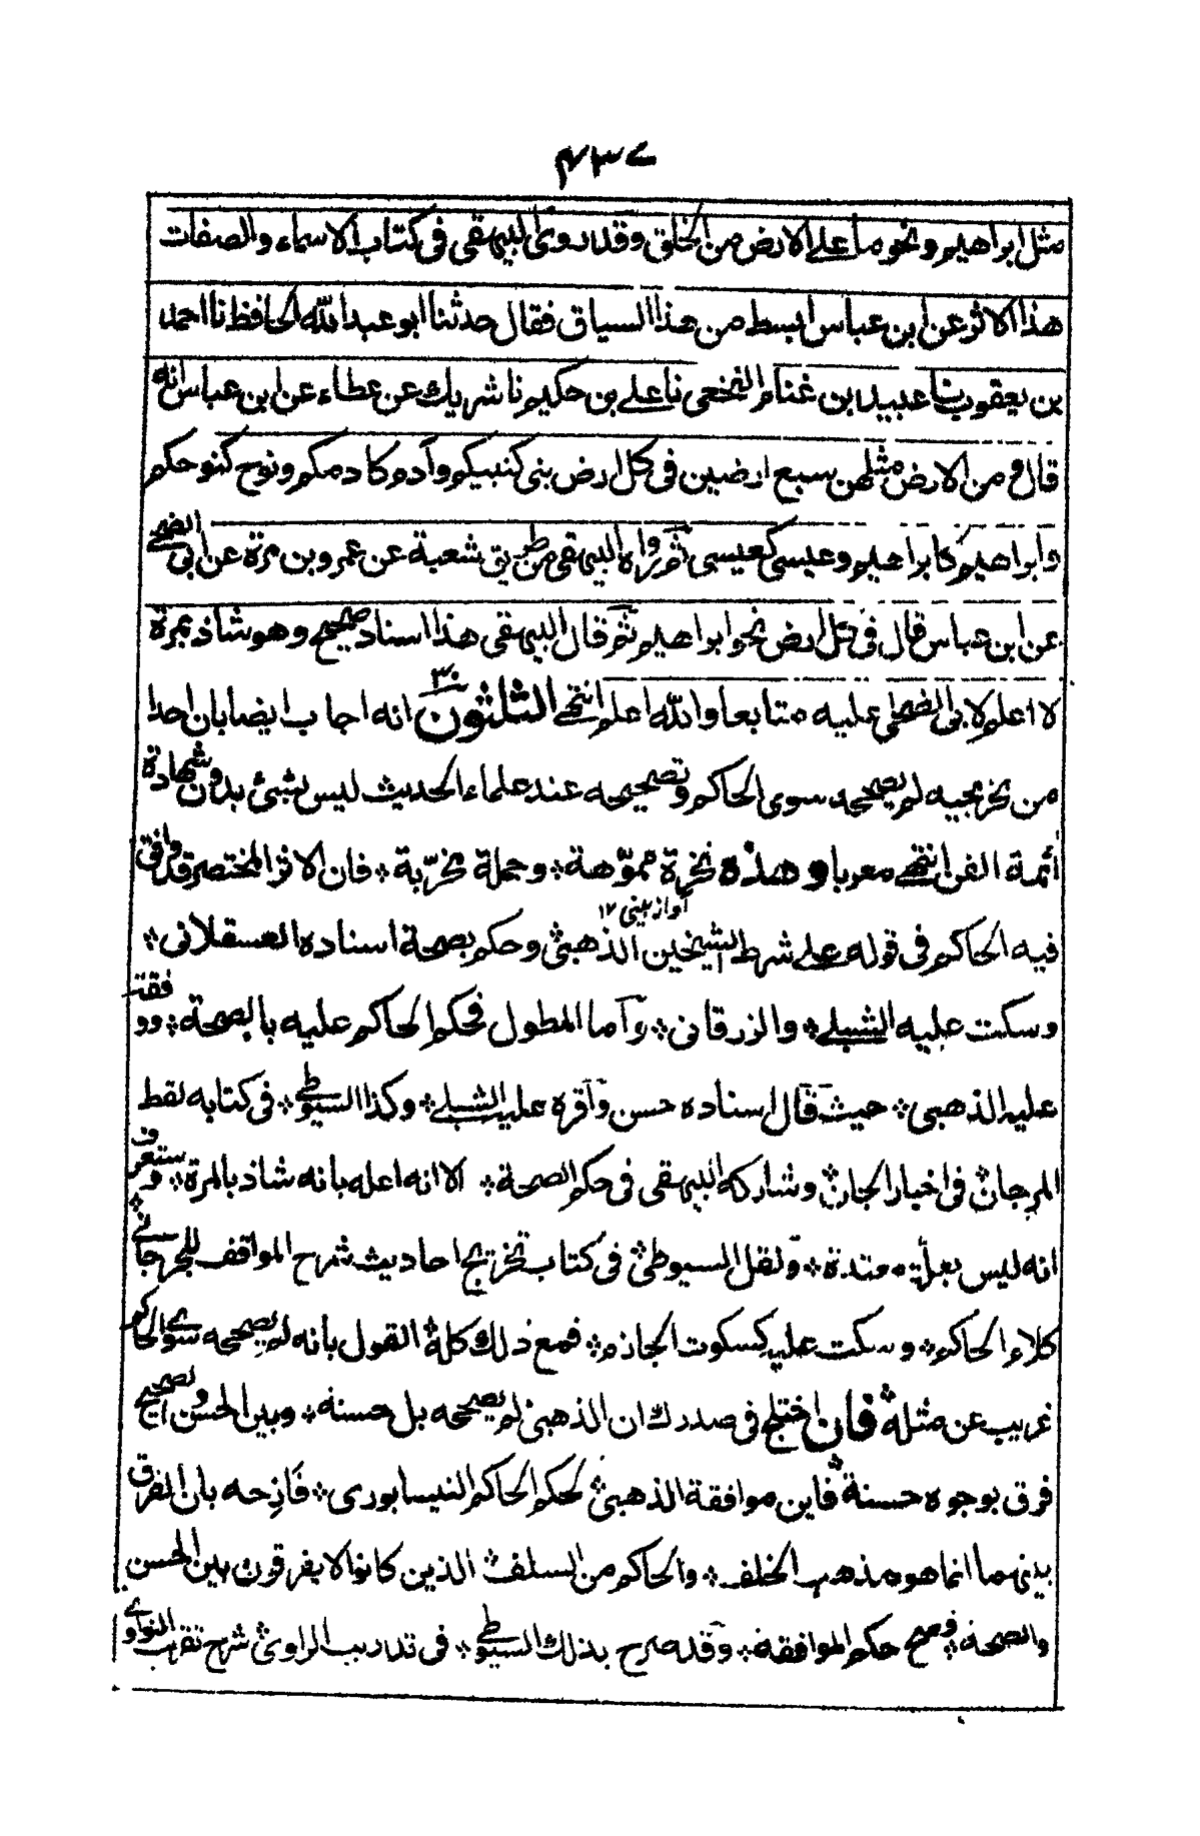 ۴۳۷
مثل ابراهيم ونحو ما على الارض من الخلق وقد روى البيهقى فى كتاب الاسماء والصفات
هذا الاثر عن ابن عباس ابسط من هذا السياق فقال حدثنا ابو عبد الله الحافظ نا احمد
بن يعقوب نا عبيد بن غنام النخعى نا على بن حكيم نا شريك عن عطاء عن ابن عباس انه
قال ومن الارض مثلهن سبع ارضين فى كل ارض نبى كنبيكم وآدم كادمكم ونوح كنوحكم
وابراهيم كابراهيم وعيسى كعيسى ثم رواه البيهقى من طريق شعبة عن عمرو بن مرة عن ابى الضحى
عن ابن عباس قال فى كل ارض نحو ابراهيم ثم قال البيهقى هذا اسناد صحيح وهو شاذ بمرة
لا اعلم لابى الضحى عليه متابعا والله اعلم انتهى الثلثون ۳۰ انه اجاب ايضا بان احدا
من مخرجيه لم يصححه سوى الحاكم وتصحيحه عند علماء الحديث ليس بشئ بدون شهادة
أئمة الفن انتهى معربا وهذه نخرة مموّهة٭ وجملة مخرّبة٭ فان الاثر المختصر قد وافق
فيه الحاكم فى قوله على شرط الشيخين الذهبى٭ وحكم بصحة اسناده العسقلانى٭
آواز بينى ۱۲
وسكت عليه الشبلى٭ والزرقانى٭ وأما المطول فحكم الحاكم عليه بالصحة٭ ووافقه
عليه الذهبى٭ حيث قال اسناده حسن وأقره عليه الشبلى٭ وكذا السيوطى٭ فى كتابه لقط
المرجان٭ فى اخبار الجان٭ وشاركه البيهقى فى حكم الصحة٭ الا انه اعله بانه شاذ بالمرة٭ وستعرف
انه ليس بعلة معتدة٭ ونقل السيوطى٭ فى كتاب تخريج احاديث شرح المواقف للجرجانى٭
كلام الحاكم٭ وسكت عليه كسكوت الجازم٭ فمع ذلك كله القول بانه لم يصححه سوى الحاكم
غريب عن مثله٭ فان اختلج فى صدرك ان الذهبى لم يصححه بل حسنه٭ وبين الحسن والصحيح
فرق بوجوه حسنة٭ فاين موافقة الذهبى٭ لحكم الحاكم النيسابورى٭ فأزحه بان الفرق
بينهما انما هو مذهب الخلف٭ والحاكم من السلف٭ الذين كانوا لا يفرقون بين الحسن
والصحة٭ فصح حكم الموافقة٭ وقد صرح بذلك السيوطى٭ فى تدريب الراوى٭ شرح تقريب النواوى